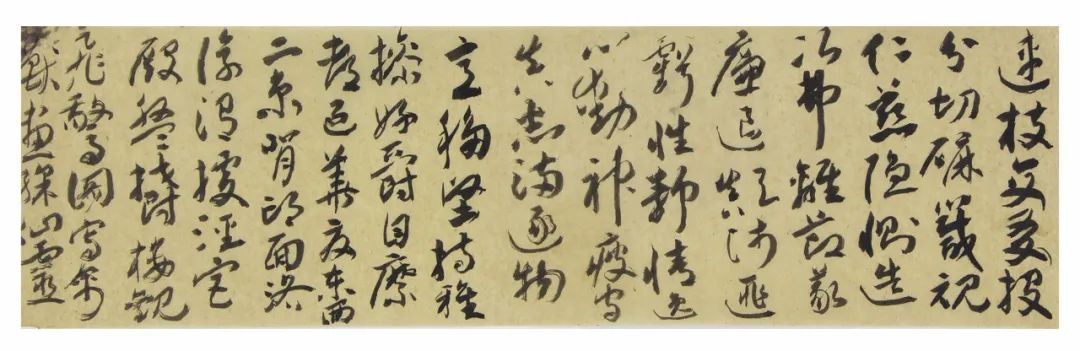 連枝交友投
分切磨箴規
仁慈隱惻造
次弗離節義
廉退顛沛匪
虧性靜情逸
心動神疲守
真志滿逐物
意移堅持雅
操好爵自縻
都邑華夏東西
二京背邙面洛
浮渭據涇宮
殿盤鬱樓觀
飛驚圖寫禽
獸畫綵仙靈